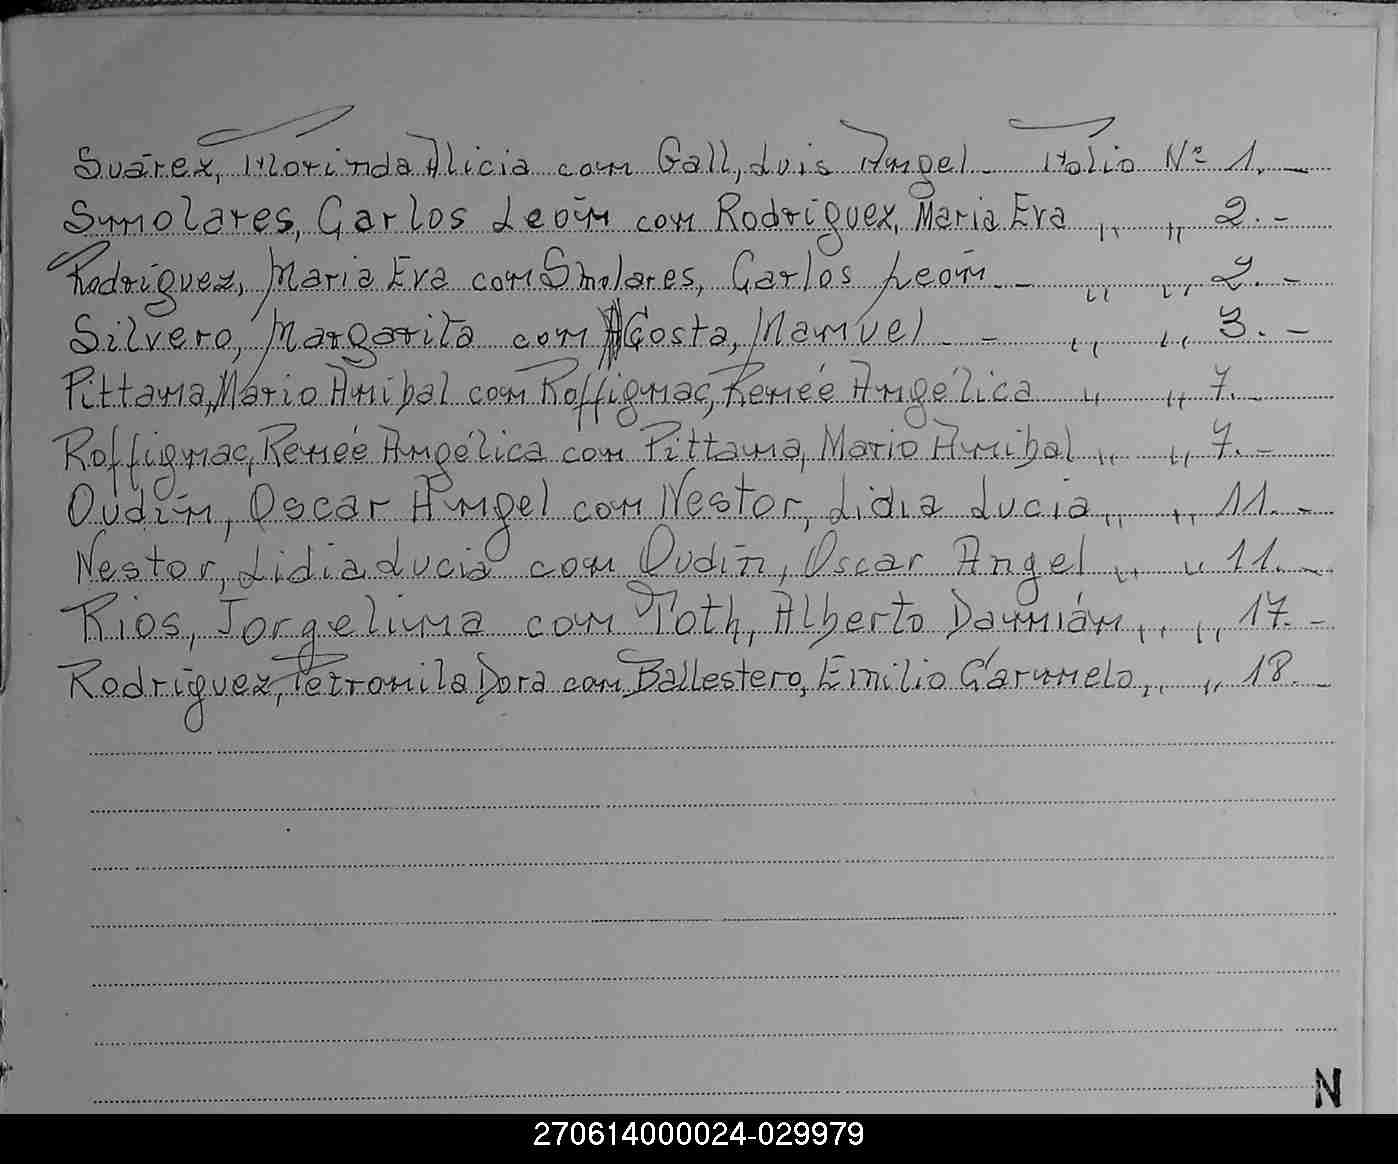 Suárez, Florinda Alicia con Gall, Luis Angel - Folio Nº 1. -
Smolares, Carlos León con Rodríguez, Maria Eva „ „ 2. -
Rodríguez, Maria Eva con Smolares, Carlos León - „ „ 2. -
Silvero, Margarita con Acosta, Manuel - - „ „ 3. -
Pittana, Mario Anibal con Roffignac, Renée Angélica „ „ 7. -
Roffignac, Renée Angélica con Pittana, Mario Anibal „ „ 7. -
Oudín, Oscar Angel con Nestor, Lidia Lucia „ „ 11. -
Nestor, Lidia Lucia con Oudín, Oscar Angel „ „ 11. -
Rios, Jorgelina con Toth, Alberto Damián „ „ 17. -
Rodríguez, Petronila Dora con Ballestero, Emilio Carmelo, „ „ 18. -
N
270614000024-029979